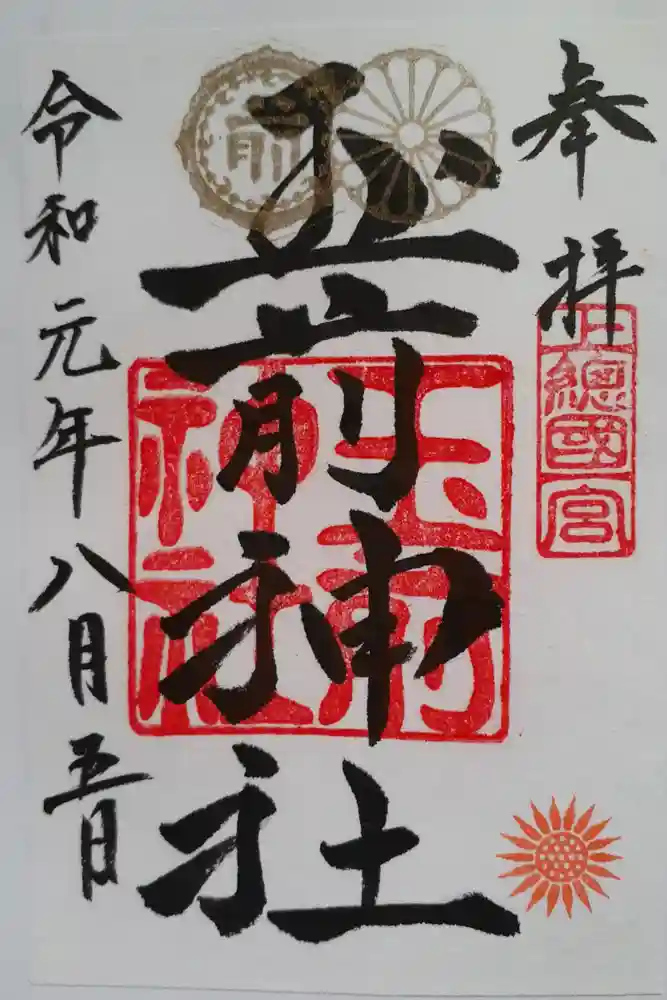 奉拝
上總國一宮
前
玉前神社
玉前神社
令和元年八月五日